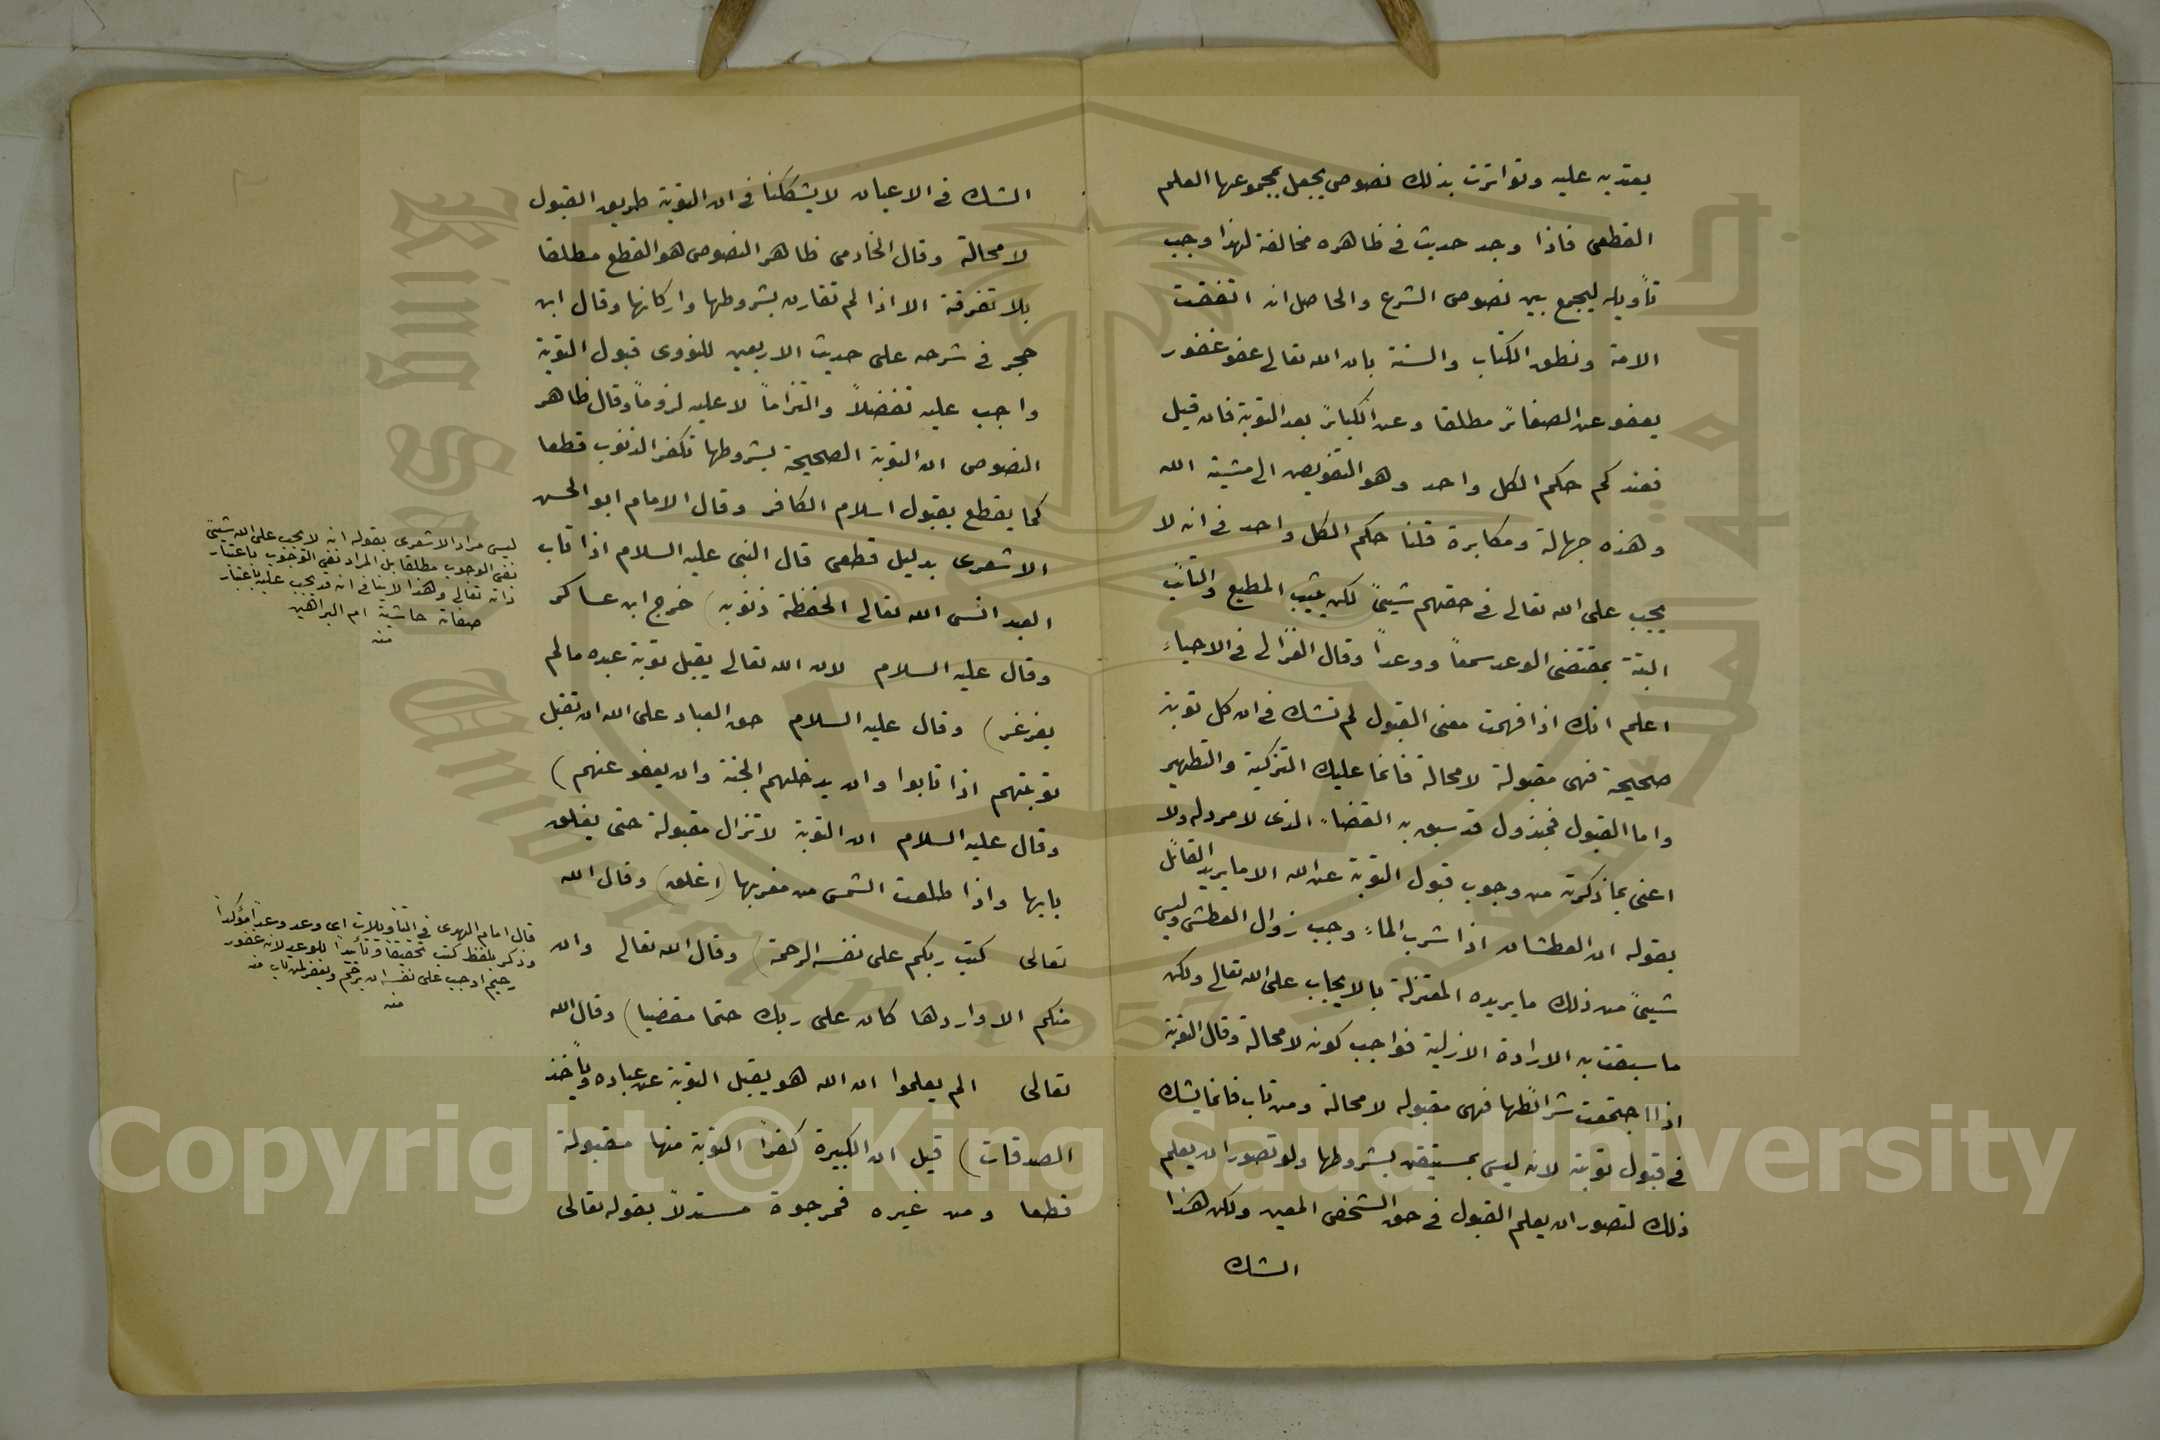 يعتد به عليه وتواترت بذلك نصوص يجعل بمجموعها العلم
القطعى فاذا وجد حديث فى ظاهره مخالفة لهذا وجب
تأويله ليجمع بين نصوص الشرع والحاصل انه اتفقت
الامة ونطق الكتاب والسنة بان الله تعالى عفو غفور
يعفو عن الصغائر مطلقا وعن الكبائر بعد التوبة فان قيل
فعندكم حكم الكل واحد وهو التفويض الى مشيته الله
وهذه جهالة ومكابرة قلنا حكم الكل واحد فى انه لا
يجب على الله تعالى فى حقهم شيئ لكن يثيب المطيع والتائب
البتة بمقتضى الوعد سمعاً ووعداً وقال الغزالى فى الاحياء
اعلم انك اذا فهمت معنى القبول لم تشك فى ان كل توبة
صحيحة فهى مقبولة لا محالة فانما عليك التزكية والتطهير
واما القبول فمبذول قد سبق به القضاء الذى لا مرد له ولا
اعنى بما ذكرته من وجوب قبول التوبة عن الله الا ما يريد القائل
بقوله ان العطشان اذا شرب الماء وجب زوال العطش وليس
شيئ من ذلك ما يريده المعتزلة بالايجاب على الله تعالى ولكن
ما سبقت به الارادة الازلية فواجب كونه لا محالة وقال التوبة
اذا اجتمعت شرائطها فهى مقبولة لا محالة ومن تاب فانما يشك
فى قبول توبته لانه ليس بمستيقن بشروطها ولو تصور ان يعلم
ذلك لتصور ان يعلم القبول فى حق الشخص المعين ولكن هذا
الشك
الشك فى الاعيان لا يشككنا فى ان التوبة طريق القبول
لا محالة وقال الخادمى ظاهر النصوص هو القطع مطلقا
بلا تفرقة الا اذا لم تقارن بشروطها واركانها وقال ابن
حجر فى شرحه على حديث الاربعين للنووى قبول التوبة
واجب عليه تفضلاً والتزاماً لا عليه لزوماً وقال ظاهر
النصوص ان التوبة الصحيحة بشروطها تكفر الذنوب قطعا
كما يقطع بقبول اسلام الكافر وقال الامام ابو الحسن
الاشعرى بدليل قطعى قال النبى عليه السلام اذا تاب
العبد انسى الله تعالى الحفظة ذنوبه) خرج ابن عساكر
وقال عليه السلام لان الله تعالى يقبل توبة عبده ما لم
يغرغر) وقال عليه السلام حق العباد على الله ان تقبل
توبتهم اذا تابوا وان يدخلهم الجنة وان يعفو عنهم)
وقال عليه السلام ان التوبة لا تزال مقبولة حتى يغلق
بابها واذا طلعت الشمس من مغربها (اغلق) وقال الله
تعالى كتب ربكم على نفسه الرحمة) وقال الله تعالى وان
منكم الا واردها كان على ربك حتما مقضيا) وقال الله
تعالى الم يعلموا ان الله هو يقبل التوبة عن عباده ويأخذ
الصدقات) قيل ان الكبيرة كفراً التوبة منها مقبولة
قطعا ومن غيره فمرجوة مستدلاً بقوله تعالى
ليس مراد الاشعرى بقوله انه لا يجب على الله شيئ
نفى الوجوب مطلقا بل المراد نفى الوجوب باعتبار
ذاته تعالى وهذا لا ينافى انه قد يجب عليه باعتبار
صفاته حاشية ام البراهين
منه
قال امام الهدى فى التأويلات اى وعد وعداً مؤكداً
وذكر بلفظ كتب تحقيقا وتأييداً للوعد لانه غفور
رحيم اوجب على نفسه ان يرحم ويغفر لمن تاب منه
منه
Copyright © King Saud University
King Saud University
1957
جامعة الملك سعود